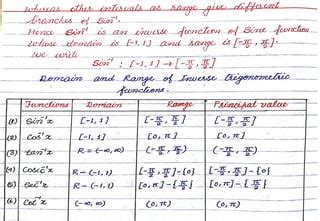 whereas other intervals as range give different
branches of Sin⁻¹.
Hence Sin⁻¹ is an inverse function of Sine function
whose domain is [-1,1] and range is [-π/2, π/2].
We write
Sin⁻¹ : [-1,1] → [-π/2, π/2]
Domain and Range of Inverse trigonometric
functions.
Functions Domain Range Principal value
(1) Sin⁻¹x [-1,1] [-π/2, π/2] [-π/2, π/2]
(2) Cos⁻¹x [-1,1] [0,π] [0,π]
(3) tan⁻¹x R = (-∞,∞) (-π/2, π/2) (-π/2, π/2)
(4) Cosec⁻¹x R-(-1,1) [-π/2, π/2]-{0} [-π/2, π/2]-{0}
(5) Sec⁻¹x R-(-1,1) [0,π]-{π/2} [0,π]-{π/2}
(6) Cot⁻¹x (-∞,∞) (0,π) (0,π)